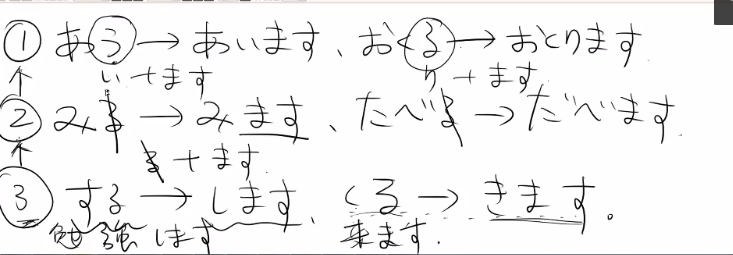 ① あう → あいます、おくる → おくります
↑ い + ます り + ます
② みる → みます、たべる → たべます.
↑ る + ます.
③ する → します、くる → きます。
勉強します 来ます.